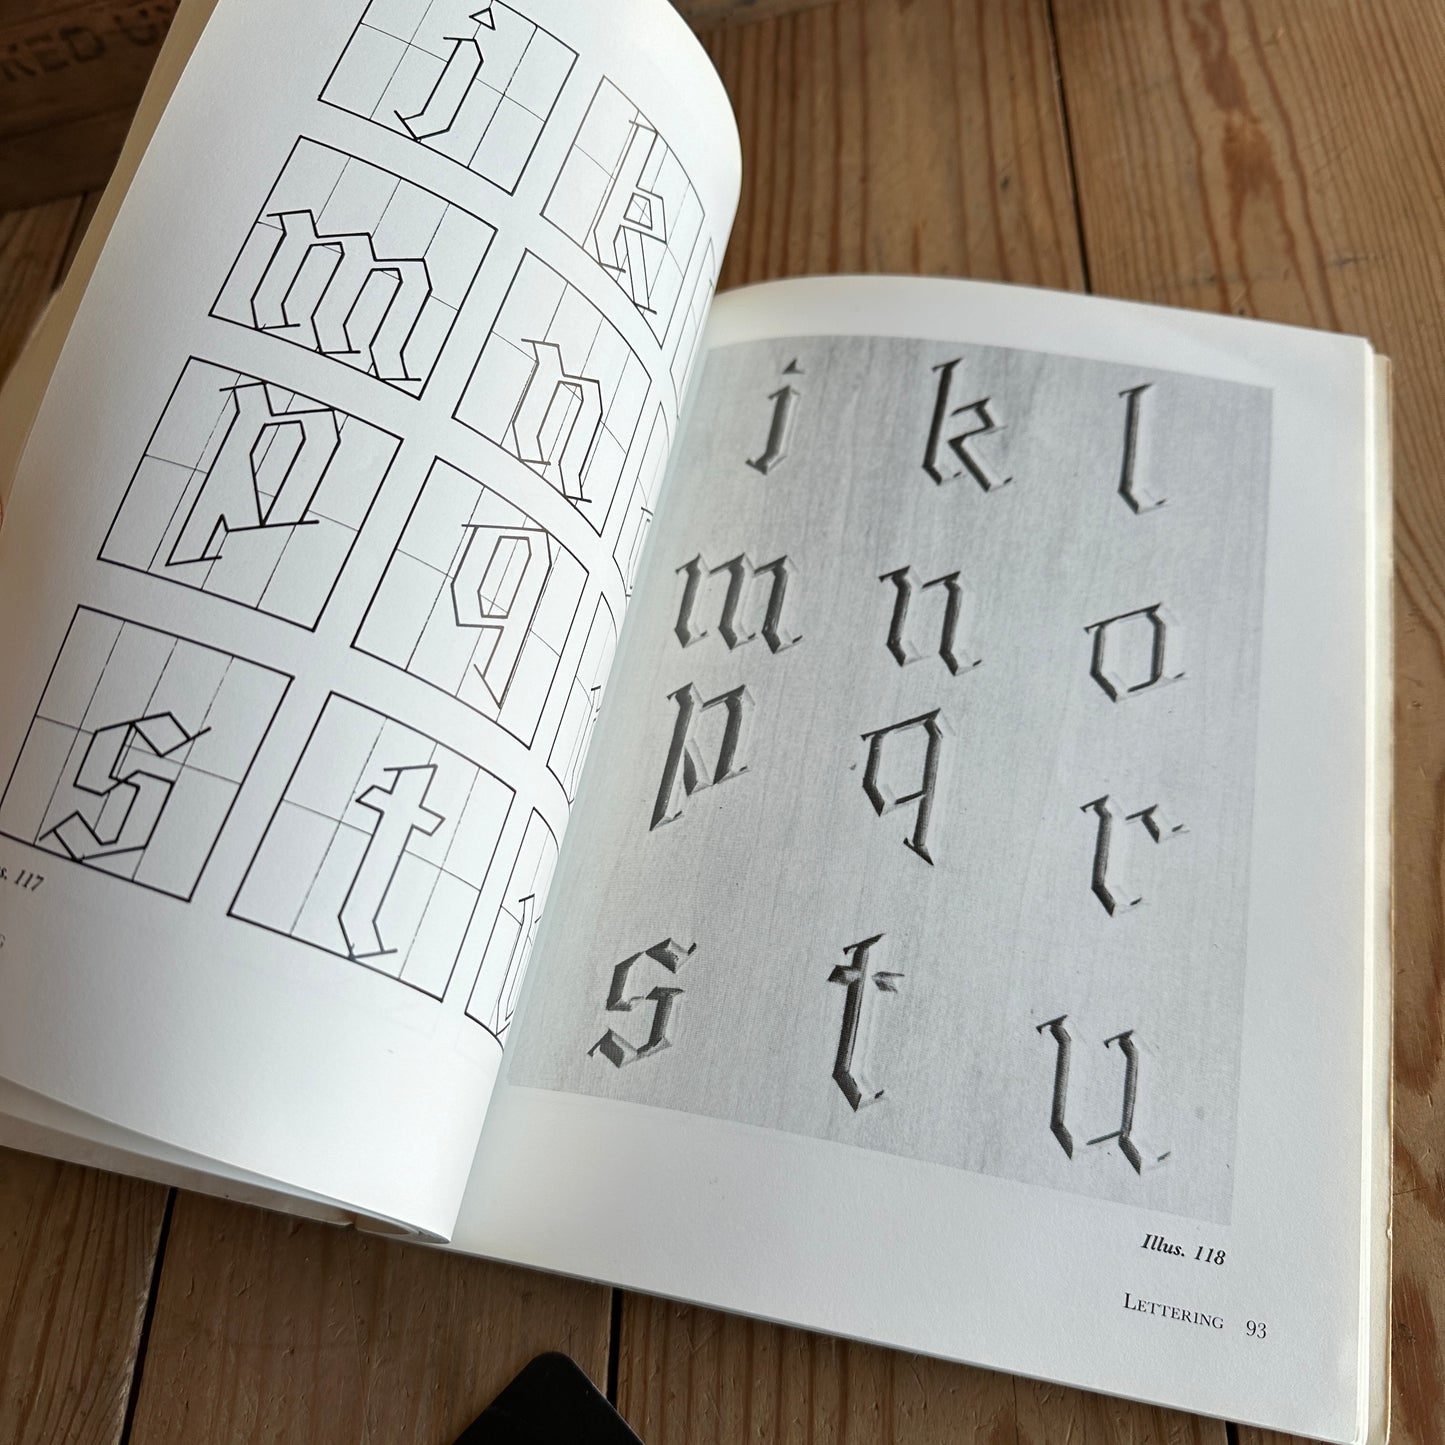 j k
m n
p q
s t
117
j k l
m n o
p q r
s t u
Illus. 118
LETTERING 93